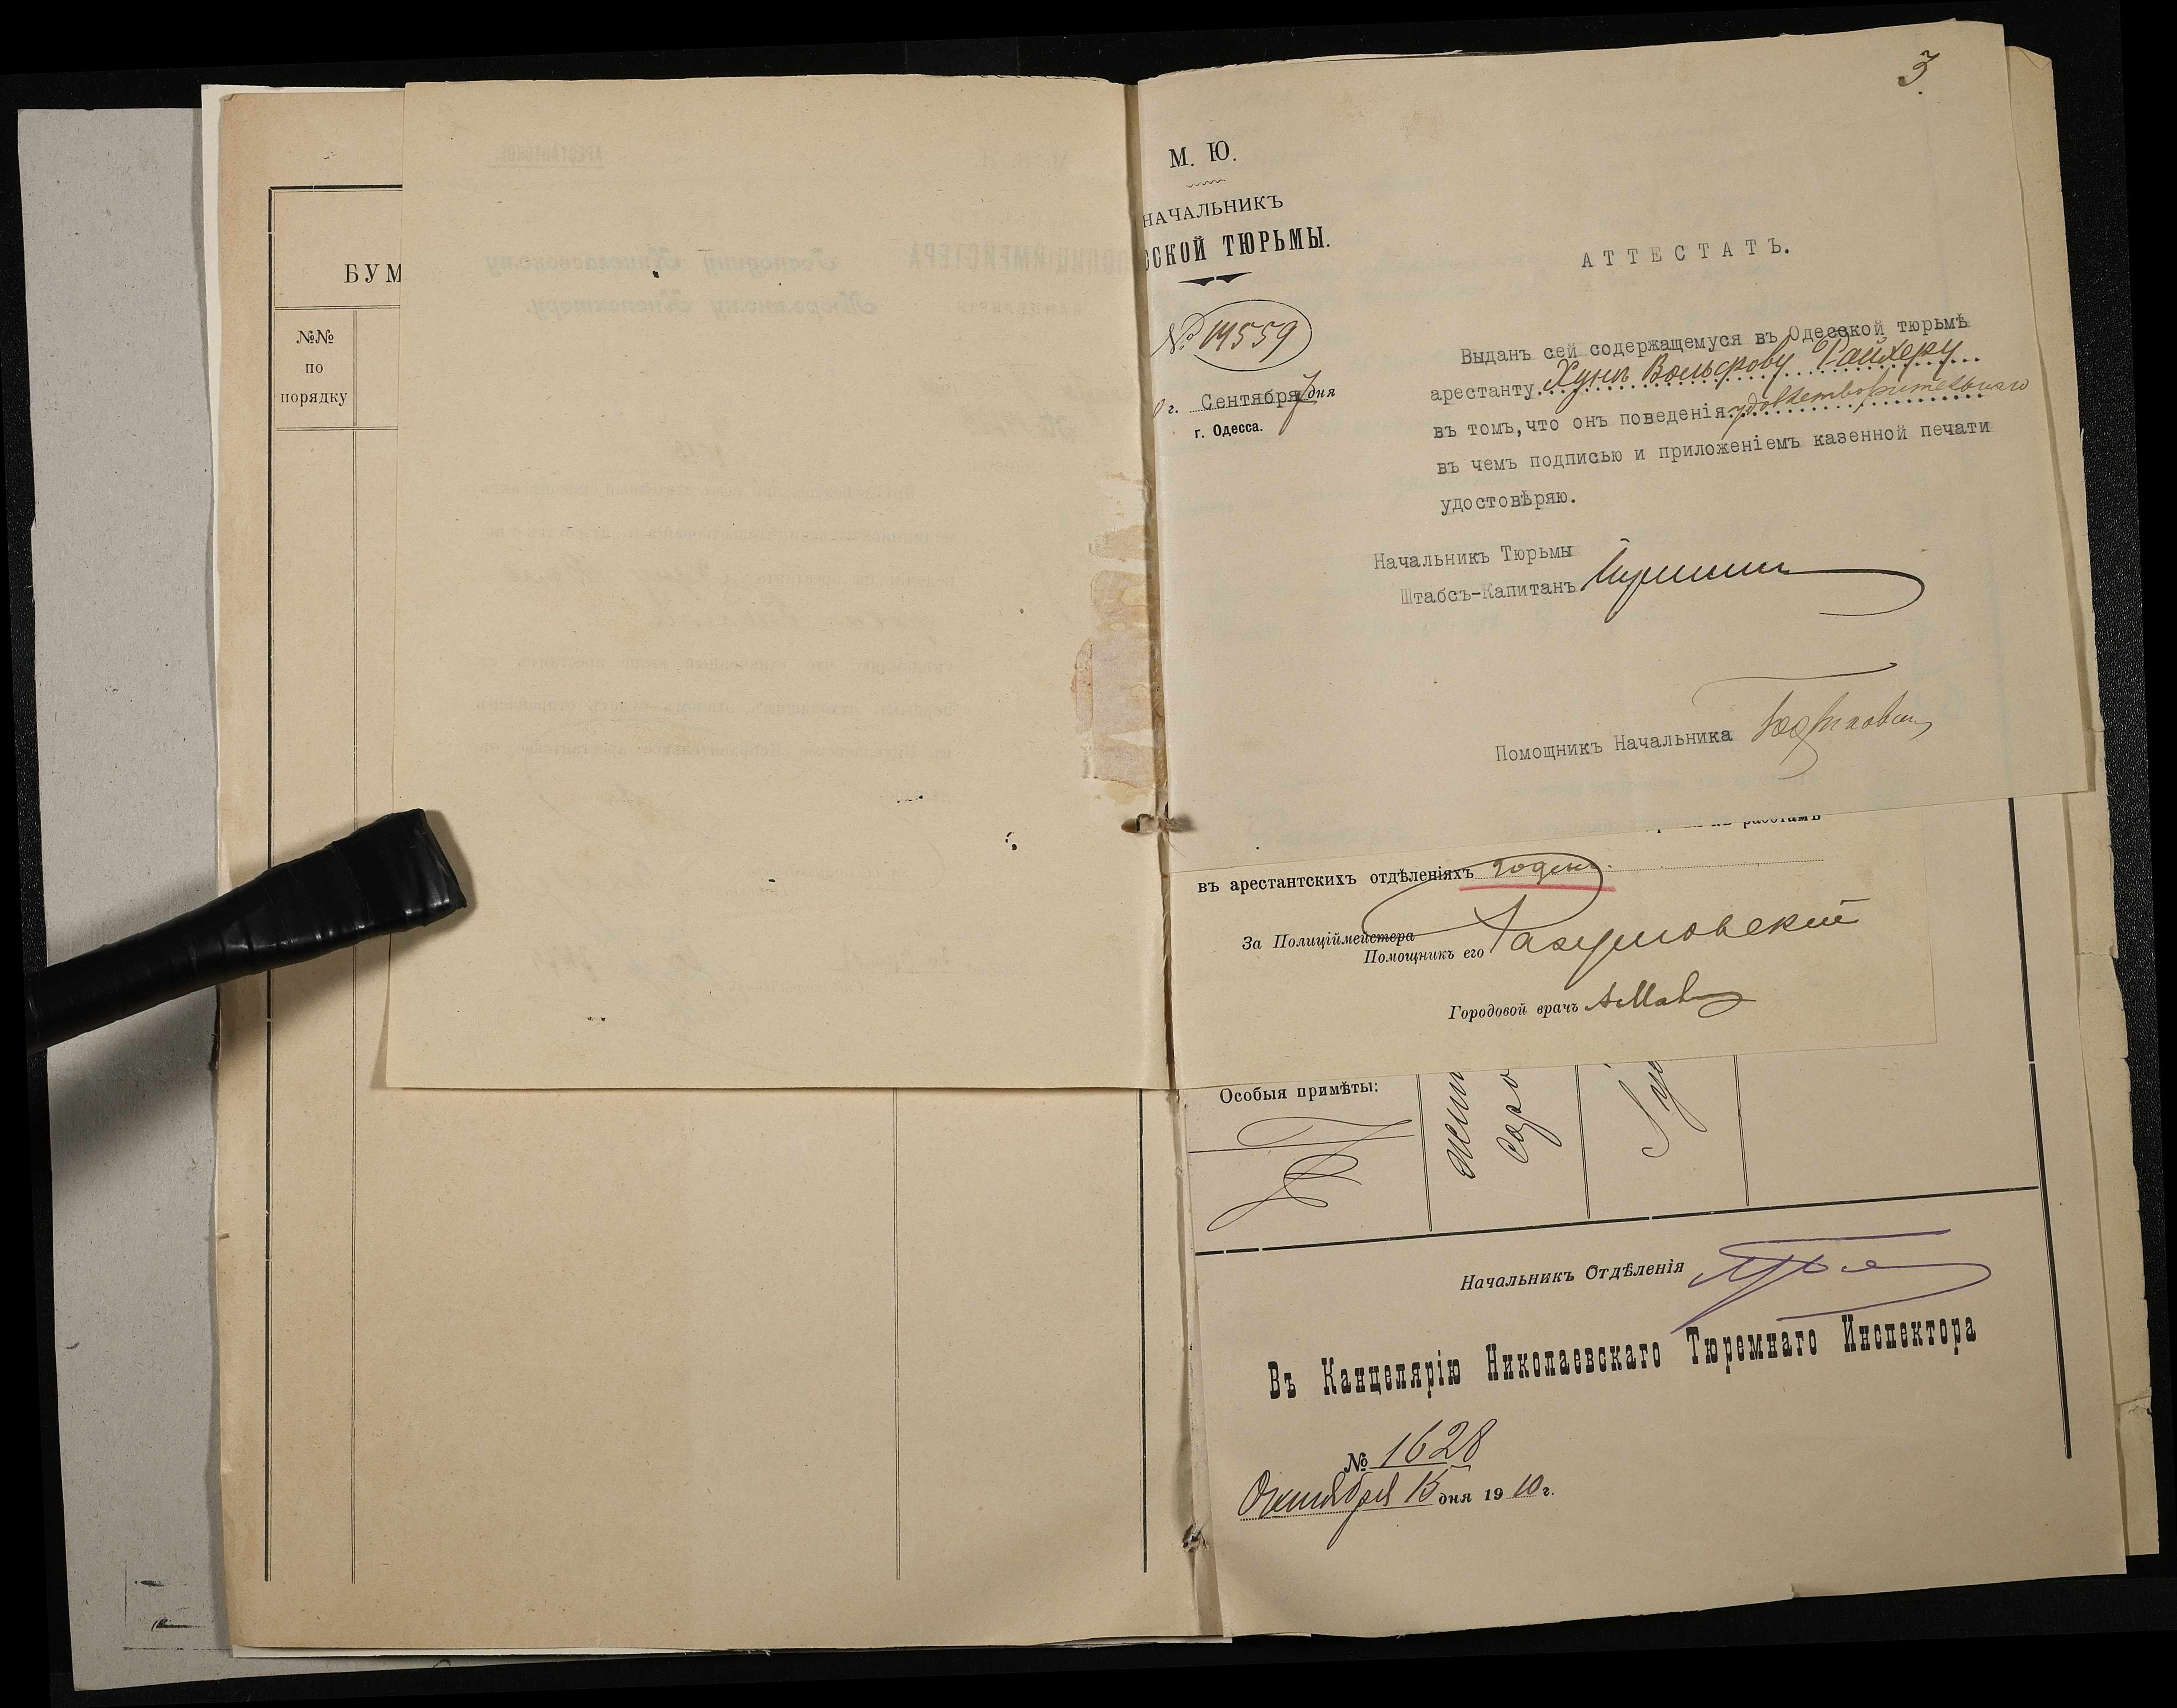 БУМ
№№
по
порядку
3
М. Ю.
НАЧАЛЬНИКЪ
ССКОЙ ТЮРЬМЫ.
№ 19559
0 г. Сентября 7 дня
г. Одесса.
АТТЕСТАТЪ.
Выданъ сей содержащемуся въ Одесской тюрьмѣ
арестанту Хунѣ Вольфову Райхеру
въ томъ, что онъ поведенія удовлетворительнаго
въ чемъ подписью и приложеніемъ казенной печати
удостовѣряю.
Начальникъ Тюрьмы
Штабсъ-Капитанъ
Помощникъ Начальника
къ работамъ
въ арестантскихъ отдѣленіяхъ годенъ.
За Полиціймейстера
Помощникъ его Разумовскій
Городовой врачъ
Особыя примѣты:
Начальникъ Отдѣленія
Въ Канцелярію Николаевскаго Тюремнаго Инспектора
№ 1628
Октября 15 дня 1910 г.